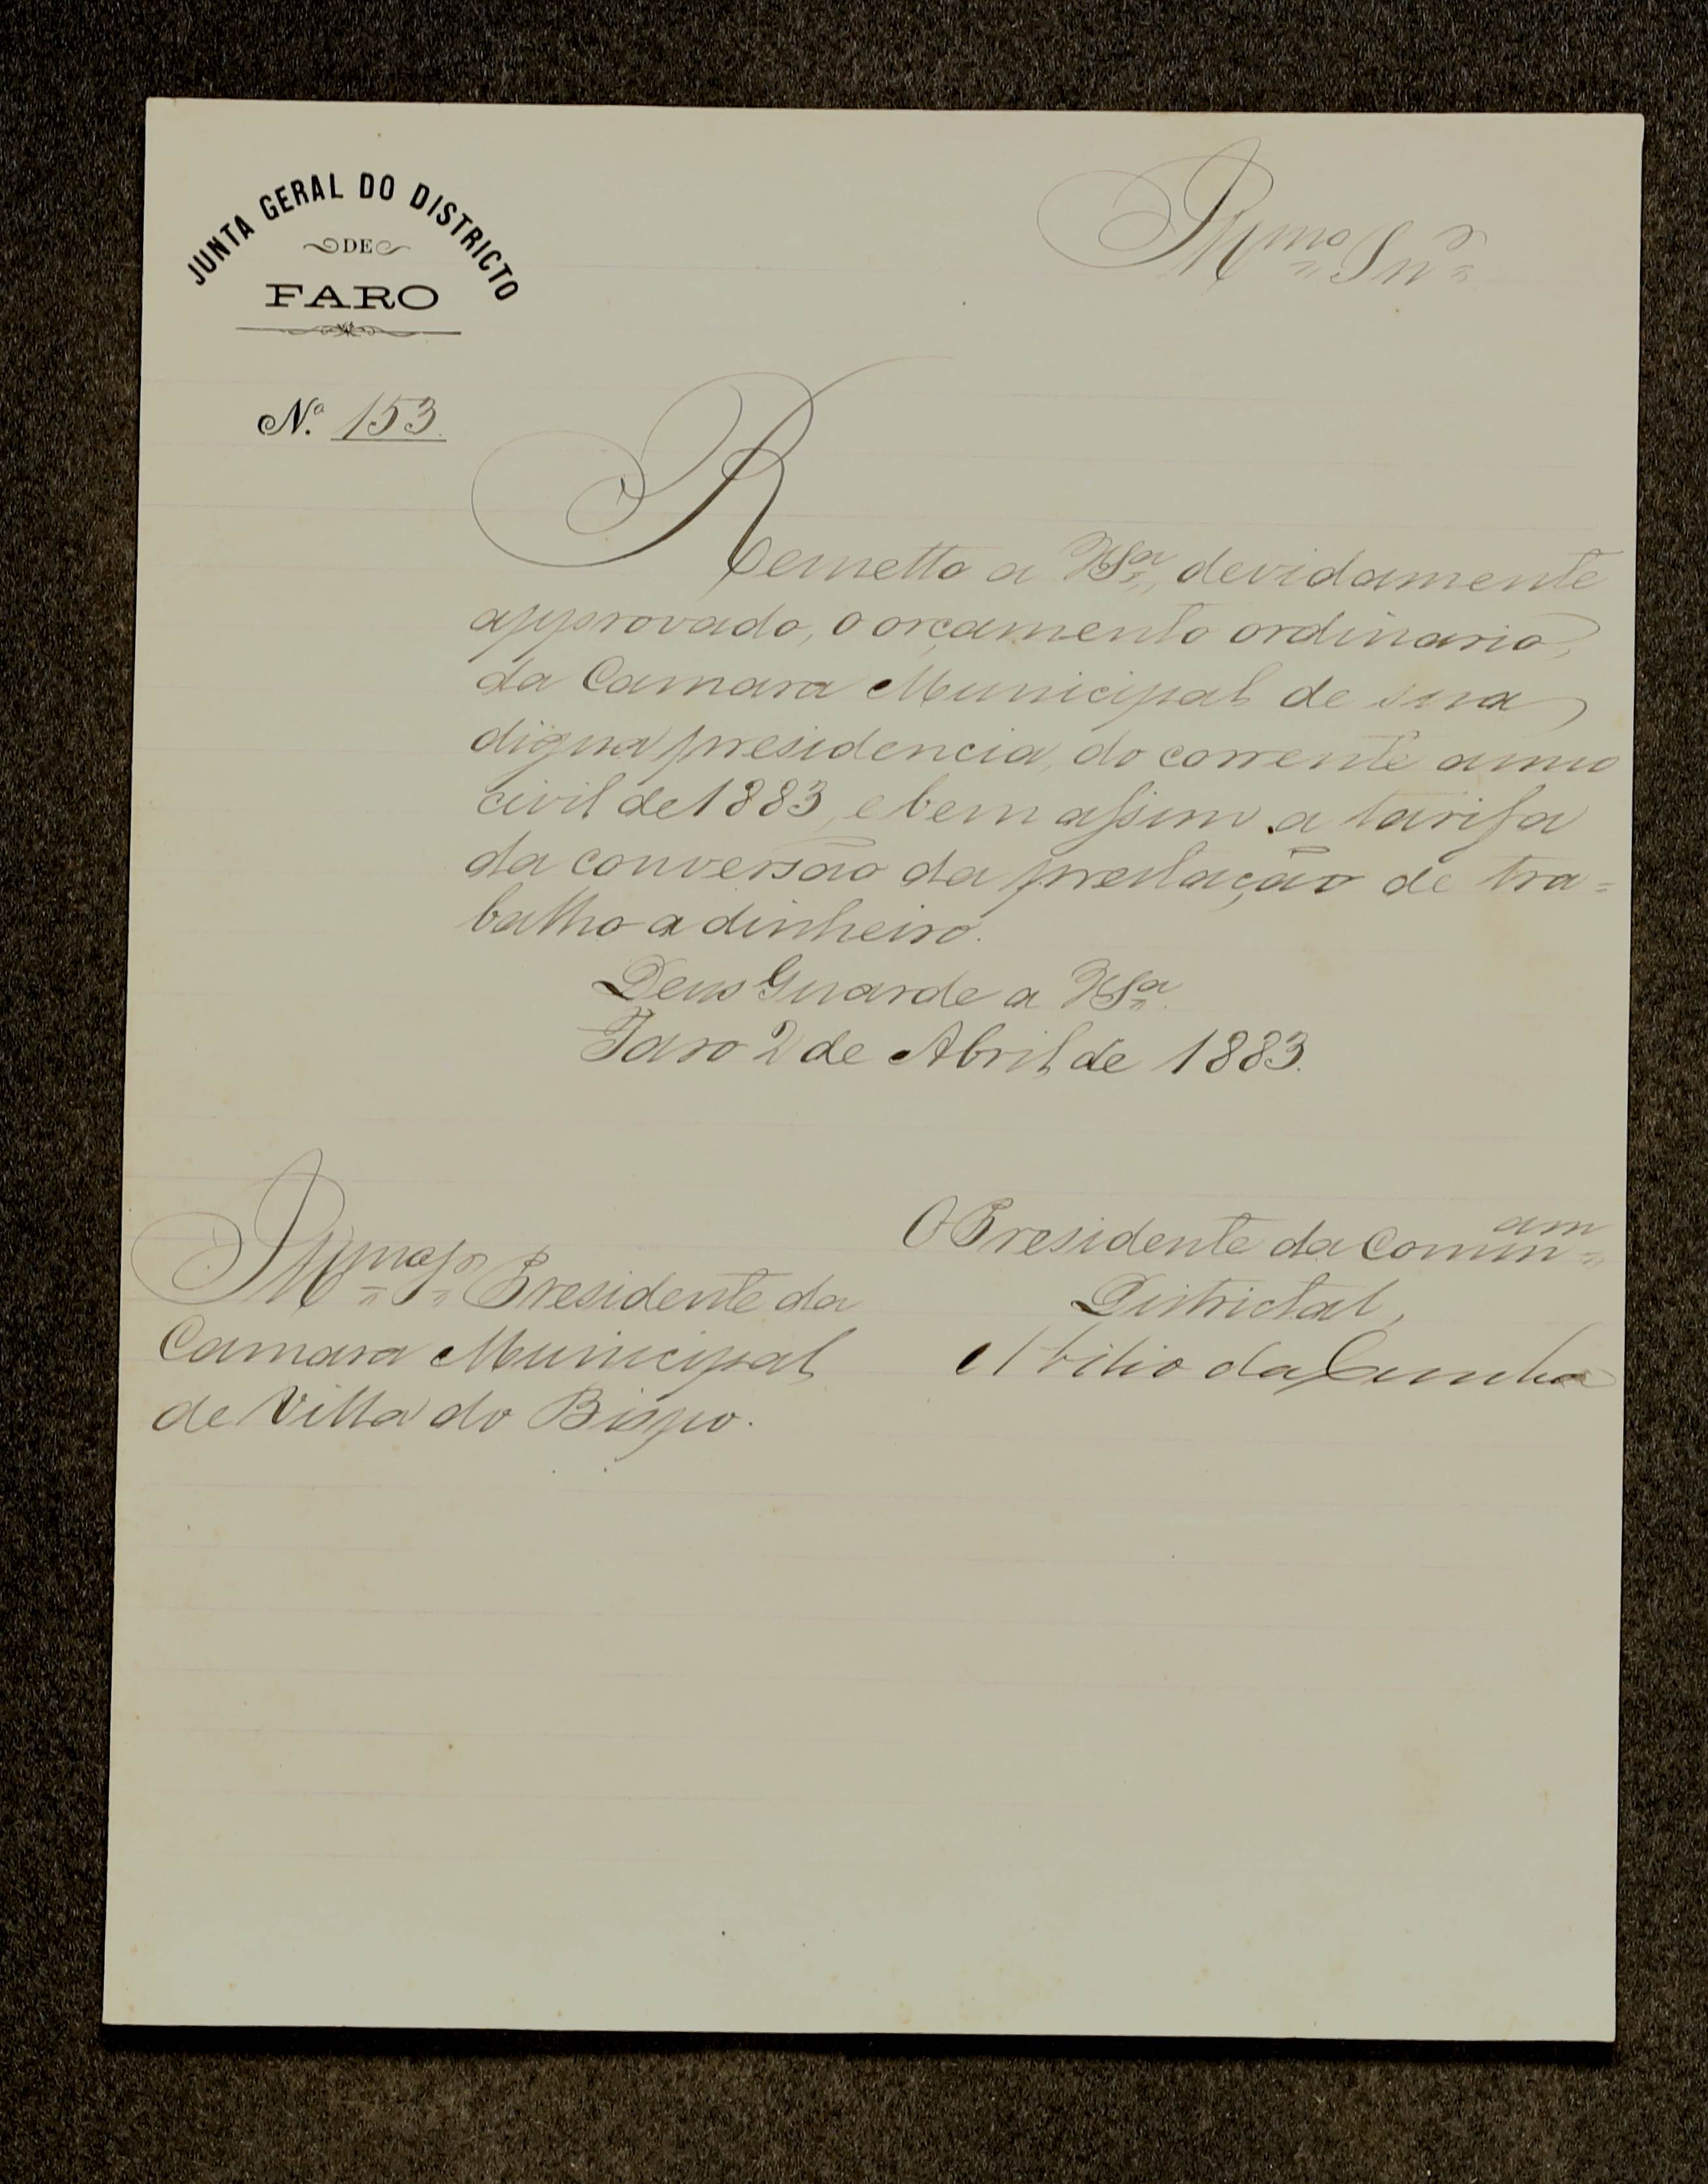 JUNTA GERAL DO DISTRICTO
DE
FARO
Illmo Snr
N.º 153
Remetto a VSa, devidamente
approvado, o orçamento ordinario,
da Camara Municipal de sua
digna presidencia, do corrente anno
civil de 1883, e bem assim a tarifa
da conversão da prestação de tra=
balho a dinheiro.
Deus Guarde a VSa
Faro 2 de Abril de 1883.
O Presidente da Commam
Districtal,
Abilio da Cunha
Illmo Sr Presidente da
Camara Municipal
de Villa do Bispo.